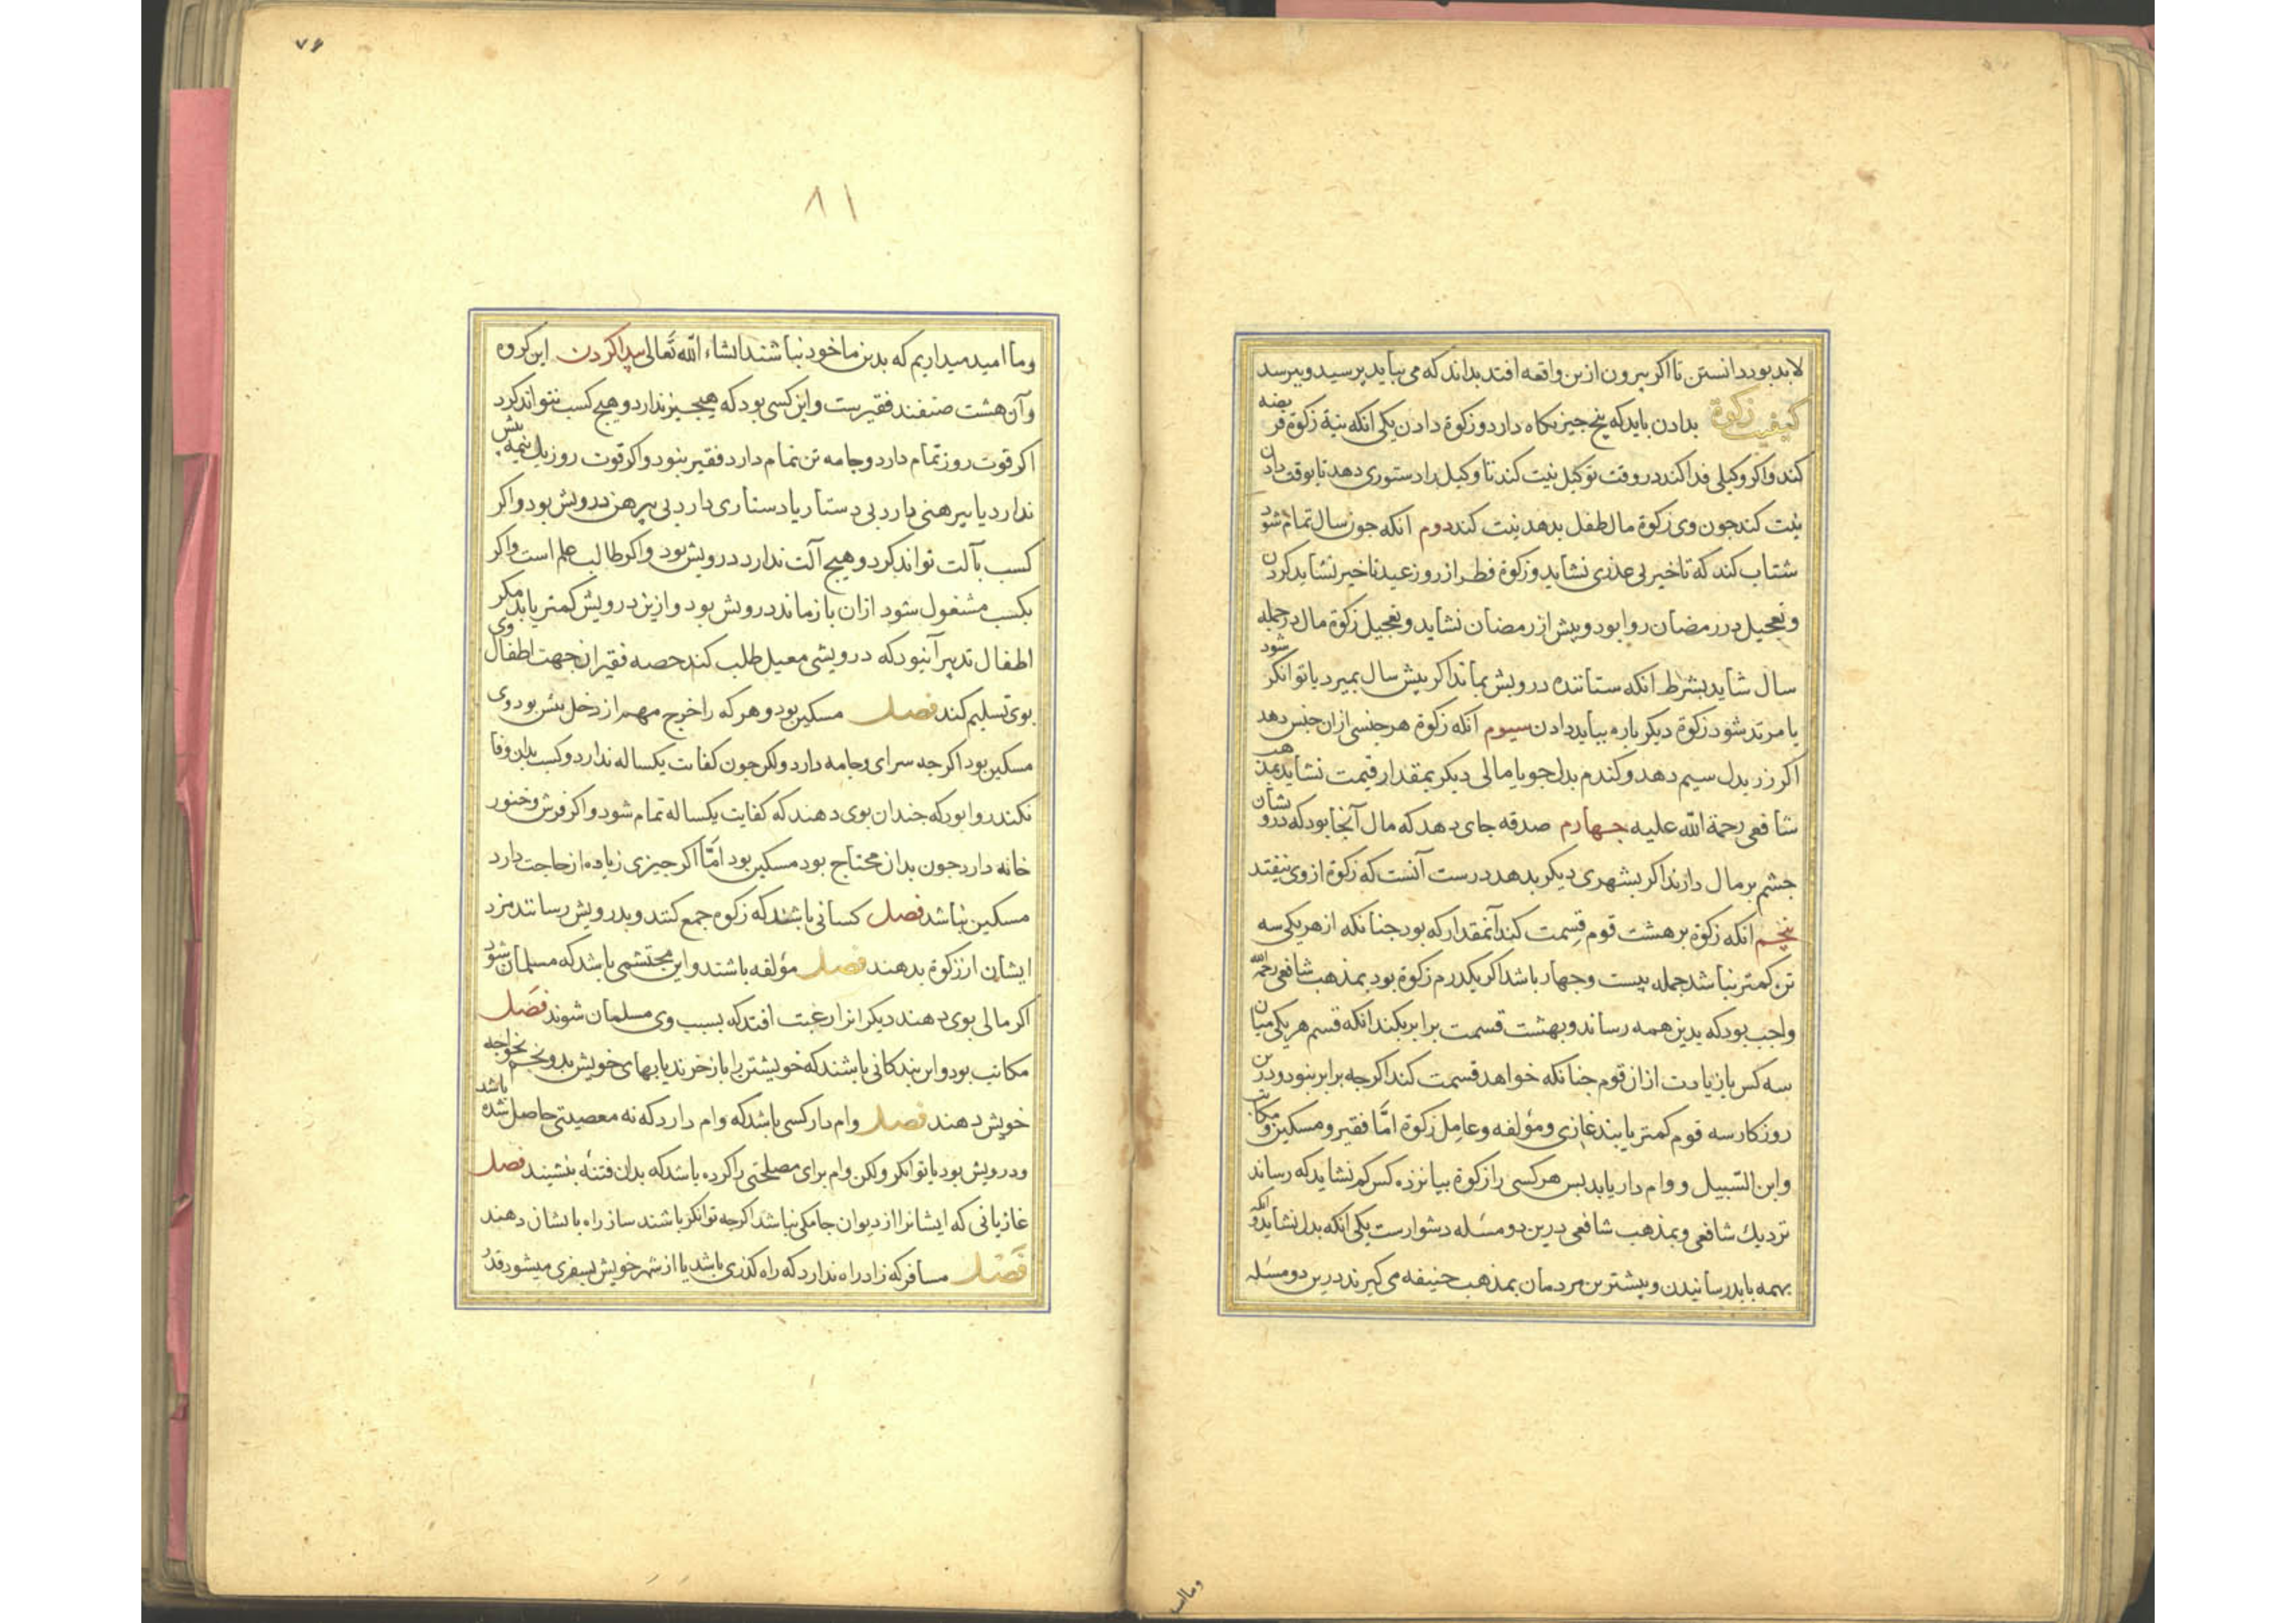 لابد بود دانستن تا اکر بیرون ازین واقعه افتد بداند که می بباید پرسید و بپرسد
کیفیت زکوة بدادن باید که پنج جیز نکاه دارد و زکوة دادن یکی انکه نیة زکوة فریضه
کند و اکر وکیلی فدا کند در وقت توکیل نیت کند تا وکیل را دستوری دهد تا بوقت دادن
نیت کند جون وی زکوة مال طفل بدهد نیت کند دوم انکه جون سال تمام شود
شتاب کند که تاخیر بی عذری نشاید و زکوة فطر از روز عید تاخیر نشاید کردن
و تعجیل در رمضان روا بود و پیش از رمضان نشاید و تعجیل زکوة مال در جمله
سال شاید بشرط انکه ستاننده درویش بماند اکر پیش سال بمیرد یا توانکر شود
یا مرتد شود زکوة دیکر باره بباید دادن سیوم انکه زکوة هر جنسی ازان جنس دهد
اکر زر بدل سیم دهد و کندم بدل جو یا مالی دیکر بمقدار قیمت نشاید بمذهب
شافعی رحمة الله علیه جهارم صدقه جای دهد که مال آنجا بود که درویشان
جشم بر مال دارند اکر بشهری دیکر بدهد درست آنست که زکوة از وی بیفتد
پنجم انکه زکوة بر هشت قوم قسمت کند آنمقدار که بود جنانکه از هر یکی سه
تن کمتر نباشد جمله بیست و جهار باشد اکر یکدرم زکوة بود بمذهب شافعی رحمه الله
واجب بود که بدین همه رساند و بهشت قسمت برابر بکند انکه قسم هر یکی میان
سه کس یا زیادت ازان قوم جنانکه خواهد قسمت کند اکرجه برابر بنود و درین
روزکار سه قوم کمتر یابند غازی و مؤلفه و عامل زکوة امّا فقیر و مسکین و مکاتب
و ابن السّبیل و وام دار یابد بس هر کسی را زکوة بپانزده کس کم نشاید که رساند
نزدیک شافعی و بمذهب شافعی درین دو مسئله دشوارست یکی انکه بدل نشاید و انکه
بهمه باید رسانیدن و بیشترین مردمان بمذهب حنیفه می کیرند درین دو مسئله
ومااا
۷۶
۸۱
وما امید میداریم که بدین ماخوذ نباشند انشاء الله تعالی پیدا کردن این کروه
و آن هشت صنفند فقیرست و این کسی بود که هیجیز ندارد و هیج کسب نتواند کرد
اکر قوت روز تمام دارد و جامه تن تمام دارد فقیر بنود و اکر قوت روز یک نیمه بیش
ندارد یا پیرهنی دارد بی دستار یا دستاری دارد بی پیرهن درویش بود و اکر
کسب بآلت تواند کرد و هیج آلت ندارد درویش بود و اکر طالب علم است و اکر
بکسب مشغول شود ازان باز ماند درویش بود و ازین درویش کمتر یابند مکر
اطفال تدبیر آنبود که درویشی معیل طلب کند حصه فقیران جهت اطفال وی
بوی تسلیم کند فصل مسکین بود و هر که را خرج مهم از دخل بیش بود وی
مسکین بود اکرجه سرای و جامه دارد ولکن جون کفایت یکساله ندارد و کسب بدان وفا
نکند روا بود که جندان بوی دهند که کفایت یکساله تمام شود و اکر فرش و خنور
خانه دارد جون بدان محتاج بود مسکین بود امّا اکر جیزی زیاده از حاجت دارد
مسکین نباشد فصل کسانی باشند که زکوه جمع کنند و بدرویش رسانند مزد
ایشان از زکوة بدهند فصل مؤلفه باشند و این محتشمی باشد که مسلمان شود
اکر مالی بوی دهند دیکرانرا رغبت افتد که بسبب وی مسلمان شوند فصل
مکاتب بود و این بندکانی باشند که خویشتن را باز خرند یا بهای خویش بدو نجم بخواجه
خویش دهند فصل وام دار کسی باشد که وام دارد که نه معصیتی حاصل شده باشد
و درویش بود یا توانکر ولکن وام برای مصلحتی را کرده باشد که بدان فتنه بنشیند فصل
غازیانی که ایشانرا از دیوان جامکی نباشد اکرجه توانکر باشند ساز راه بایشان دهند
فصل مسافر که زاد راه ندارد که راه کذری باشد یا از شهر خویش بسفری میشود قدر